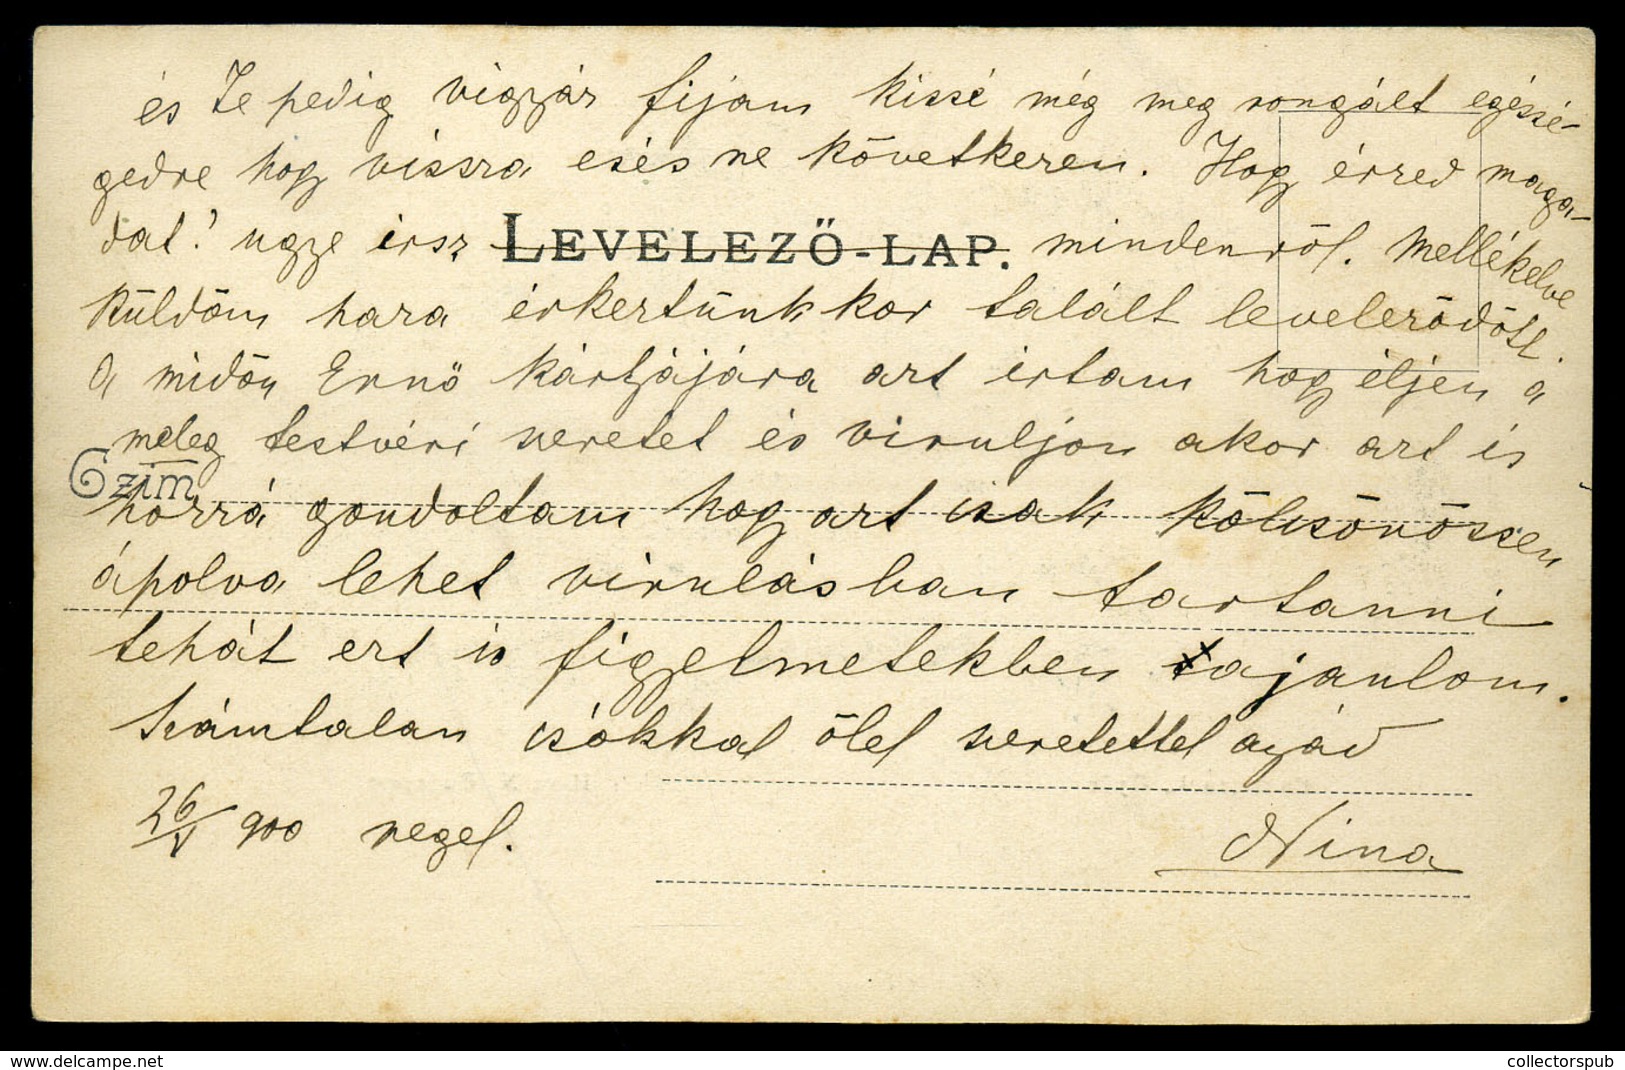 és Te pedig vigyáz fijam kissé még meg rongált egéssé-
gedre hogy vissza esés ne következen. Hogy érzed maga-
dat! ugye irsz LEVELEZŐ-LAP. mindenről. Mellékelve
küldöm haza érkeztünkkor talált levelezödöt.
A midőn Ernő kártyájára azt irtam hogy éljen a
meleg testvéri szeretet és viruljon akor azt is
Czim
hozzá gondoltam hogy azt csak kölcsönössen
ápolva lehet virulásban tartanni
tehát ezt is figyelmetekben ajanlom.
Számtalan csókkal ölel szeretettel agád
26/V 900 regel.
Nina
www.delcampe.net
collectorspub